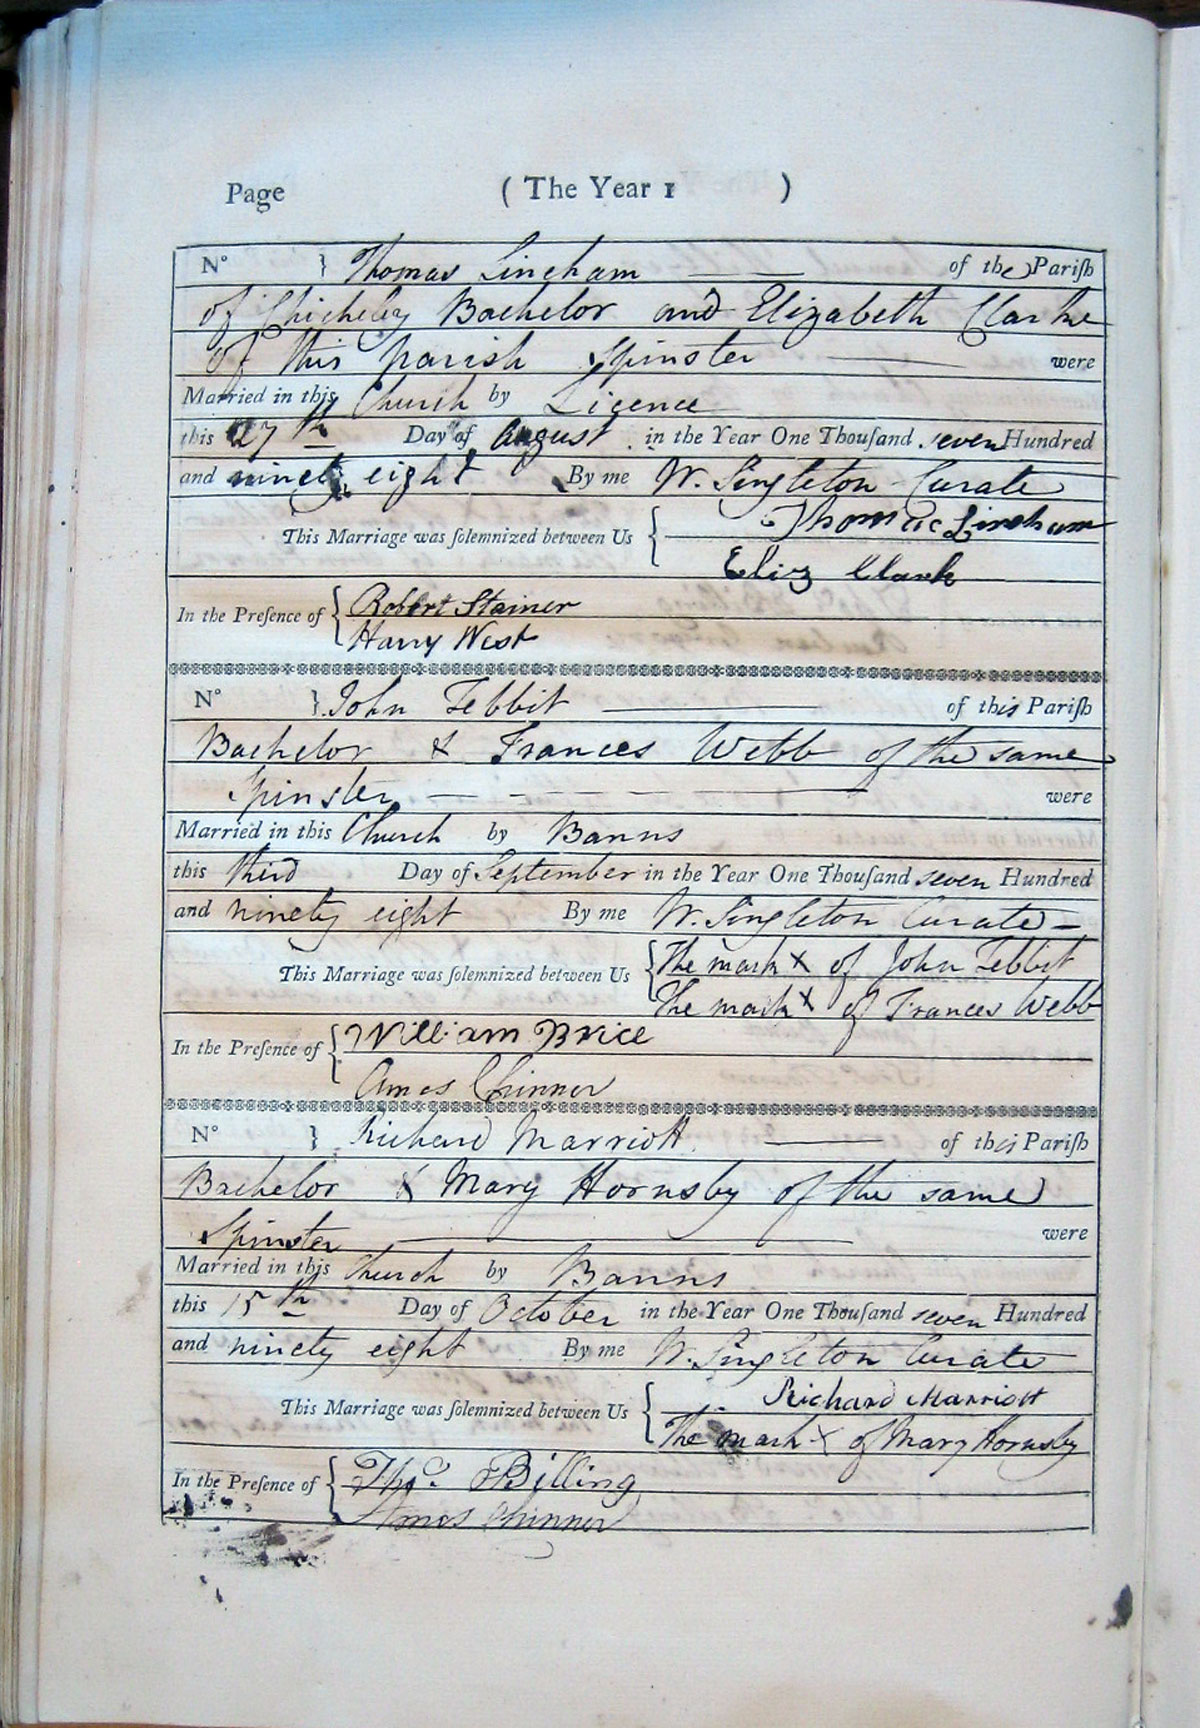 Page ( The Year 1 )
N° } Thomas Lineham of the Parish
of Chicheley Bachelor and Elizabeth Clarke
of this parish Spinster were
Married in this Church by Licence
this 27th Day of August in the Year One Thousand seven Hundred
and ninety eight By me W. Singleton Curate
This Marriage was solemnized between Us { Thomas Lineham
Eliz Clark
In the Presence of { Robert Stainer
Harry West
N° } John Tebbit of this Parish
Bachelor & Frances Webb of the same
Spinster were
Married in this Church by Banns
this third Day of September in the Year One Thousand seven Hundred
and ninety eight By me W. Singleton Curate
This Marriage was solemnized between Us { The mark X of John Tebbit
The mark X of Frances Webb
In the Presence of { William Brice
Amos Chinner
N° } Richard Marriott of this Parish
Bachelor & Mary Hornsby of the same
Spinster were
Married in this Church by Banns
this 15th Day of October in the Year One Thousand seven Hundred
and ninety eight By me W. Singleton Curate
This Marriage was solemnized between Us { Richard Marriott
The mark X of Mary Hornsby
In the Presence of { Thos. Billing
Amos Chinner